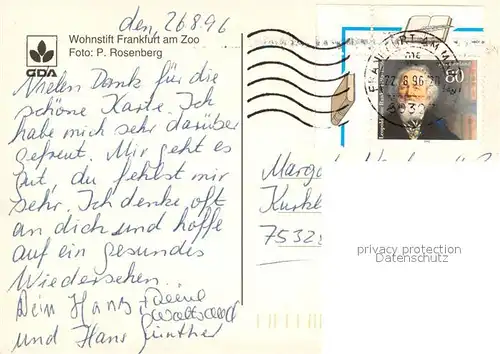 den, 26 8 96
Wohnstift Frankfurt am Zoo
Foto: P. Rosenberg
GDA
Vielen Dank für die
schöne Karte. Ich
habe mich sehr darüber
gefreut. Mir geht es
gut, du fehlst mir
sehr. Ich denke oft
an dich und hoffe
auf ein gesundes
Wiedersehen...
Dein Hans + Deine
Waltraud
und Hans Günther
FRANKFURT AM MAIN
80
Margo
7532
privacy protection
Datenschutz